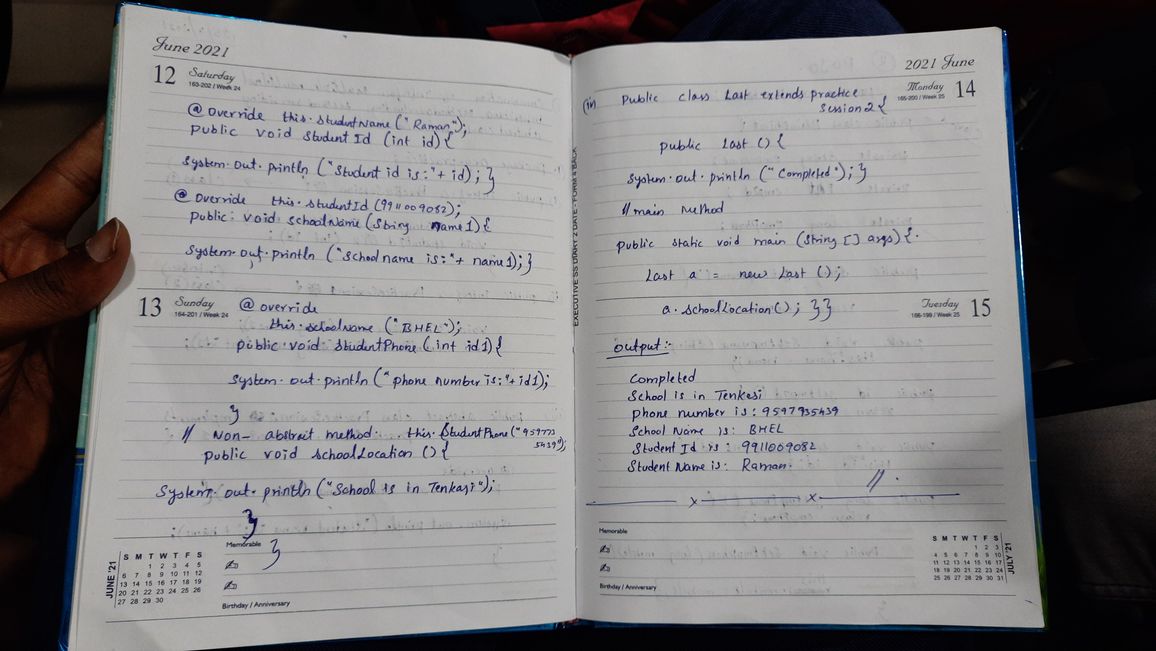 June 2021
12 Saturday
163-202 / Week 24
@ Override this.studentName ("Raman");
Public void Student Id (int id) {
System.out.println ("Student id is:"+ id); }
@ Override this.studentId (9911009082);
Public void schoolName (String name1) {
System.out.println ("School name is:"+ name1); }
13 Sunday
164-201 / Week 24
@ override
this.schoolName ("BHEL");
public void studentPhone (int id1) {
System.out.println ("phone number is:"+id1);
}
// Non-abstract method. this.StudentPhone ("959773
5439");
public void schoolLocation () {
System.out.println ("School is in Tenkasi");
}
}
JUNE '21
S M T W T F S
1 2 3 4 5
6 7 8 9 10 11 12
13 14 15 16 17 18 19
20 21 22 23 24 25 26
27 28 29 30
Memorable
Birthday / Anniversary
EXECUTIVE SS DIARY 2 DATE - FORM 4 BACK
2021 June
Monday 14
165-200 / Week 25
(iii) Public class Last extends practice
Session2 {
public Last () {
System.out.println ("Completed"); }
// main Method
public static void main (String [] args) {
Last a = new Last ();
Tuesday 15
166-199 / Week 25
a.schoolLocation(); } }
output:-
Completed
School is in Tenkasi
phone number is: 9597935439
School Name is: BHEL
Student Id is: 9911009082
Student Name is: Raman.
//.
x x
Memorable
Birthday / Anniversary
S M T W T F S
1 2 3
4 5 6 7 8 9 10
11 12 13 14 15 16 17
18 19 20 21 22 23 24
25 26 27 28 29 30 31
JULY '21